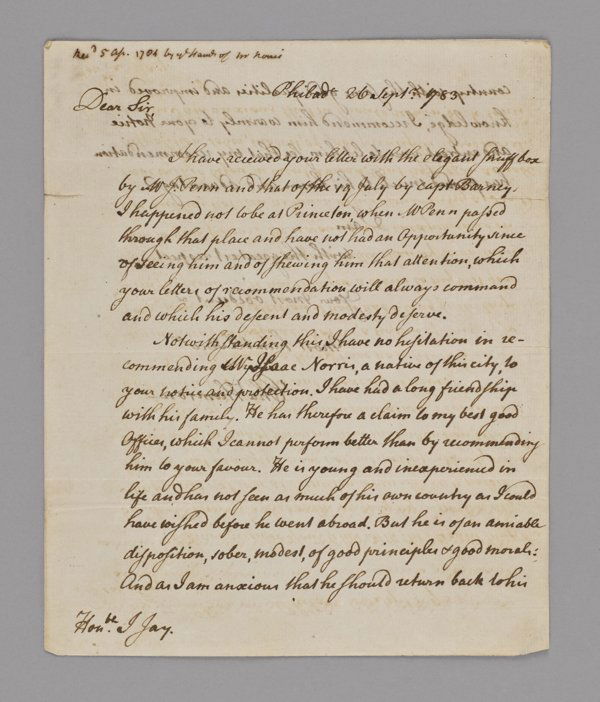 Rec.d 5 Ap. 1784 by ye. Hands of Mr Norris
Philad.a 26 Sept.r 1783
Dear Sir
I have received your letter with the elegant snuff box
by Mr J. Penn and that of the 19 July by capt Barney.
I happened not to be at Princeton, when Mr Penn passed
through that place and have not had an Opportunity since
of seeing him and of shewing him that attention, which
your letters of recommendation will always command
and which his descent and modesty deserve.
Notwithstanding this, I have no hesitation in re-
commending Isaac Norris, a native of this city, to
your notice and protection. I have had a long friendship
with his family. He has therefore a claim to my best good
Offices, which I cannot perform better than by recommending
him to your favour. He is young and inexperienced in
life and has not seen as much of his own country as I could
have wished before he went abroad. But he is of an amiable
disposition, sober, modest, of good principles & good morals:
And as I am anxious that he should return back to his
Hon.ble J Jay.